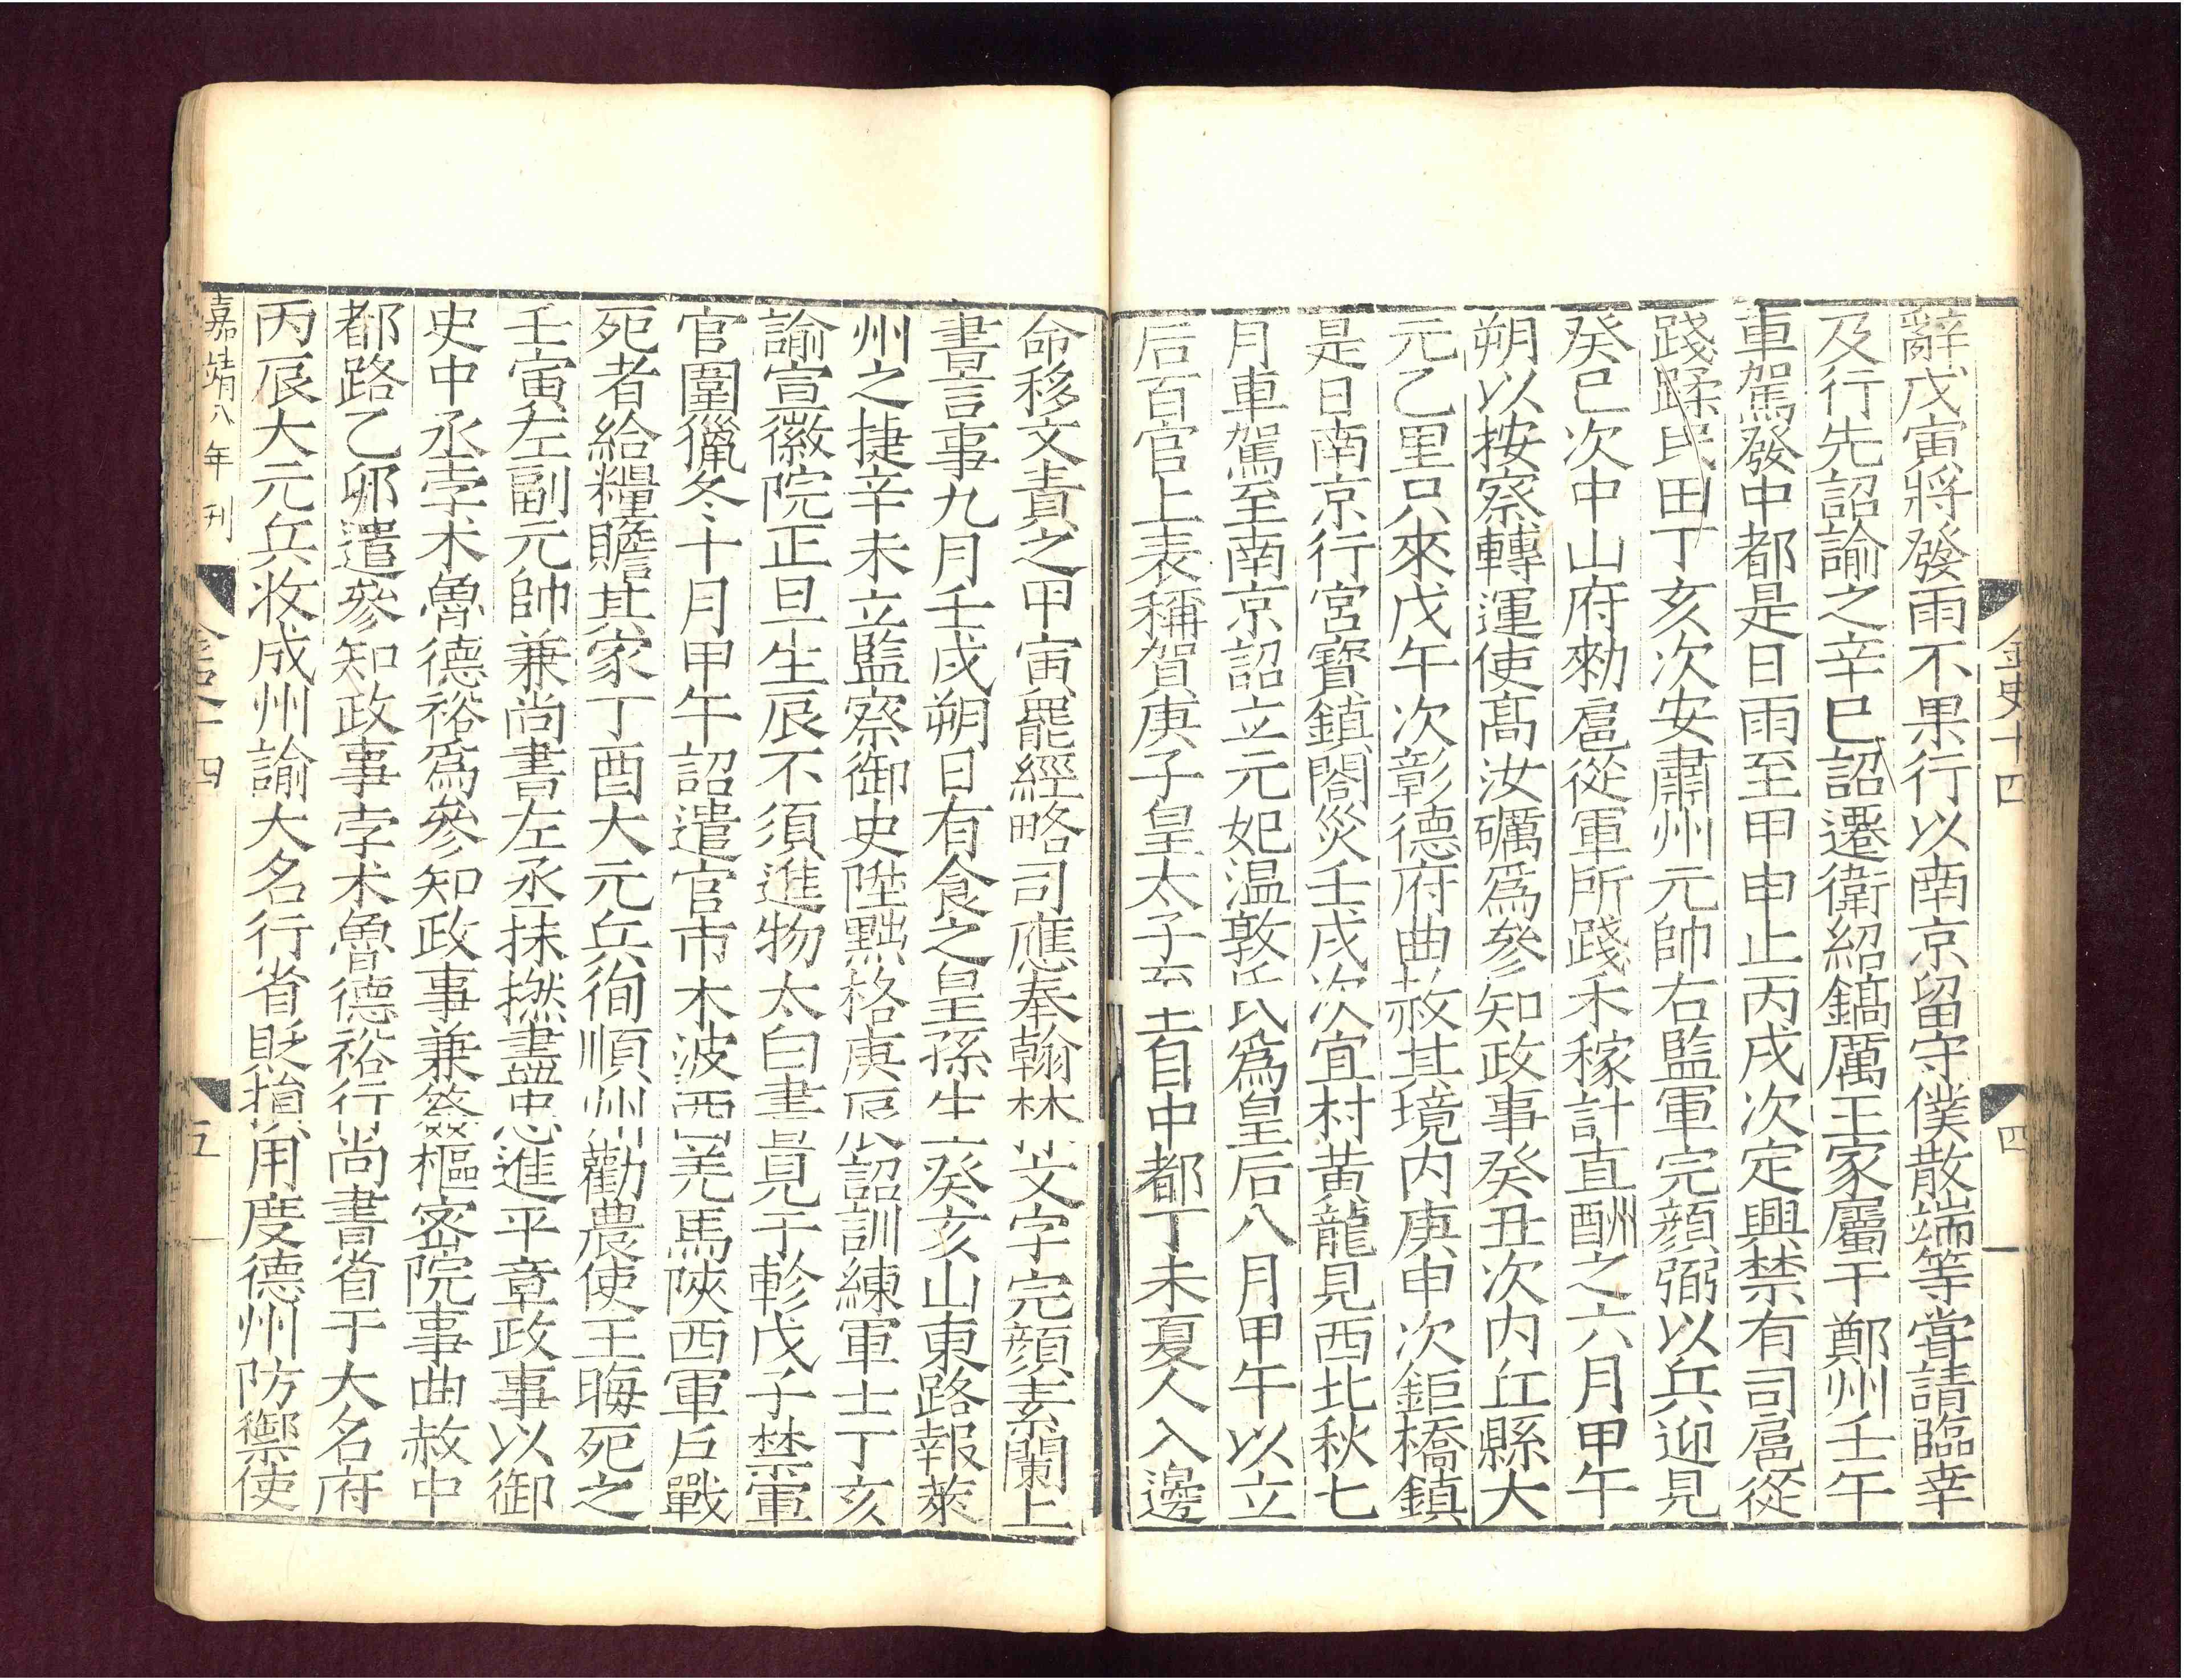 金史十四
四
辭戊寅將發雨不果行以南京留守僕散端等嘗請臨幸
及行先詔諭之辛巳詔遷衛紹鎬厲王家屬于鄭州壬午
車駕發中都是日雨至甲申止丙戌次定興禁有司扈從
踐蹂民田丁亥次安肅州元帥右監軍完顔弼以兵迎見
癸巳次中山府勑扈從軍所踐禾稼計直酬之六月甲午
朔以按察轉運使髙汝礪爲參知政事癸丑次内丘縣大
元乙里只來戊午次彰德府曲赦其境内庚申次鉅橋鎮
是日南京行宮寳鎮閣災壬戌次宜村黃龍見西北秋七
月車駕至南京詔立元妃温敦氏爲皇后八月甲午以立
后百官上表稱賀庚子皇太子至自中都丁未夏人入邊
命移文責之甲寅罷經略司應奉翰林文字完顔素蘭上
書言事九月壬戌朔日有食之皇孫生癸亥山東路報萊
州之捷辛未立監察御史陞黜格庚辰詔訓練軍士丁亥
諭宣徽院正旦生辰不須進物太白晝見于軫戊子禁軍
官圍獵冬十月甲午詔遣官市木波西羌馬陝西軍戶戰
死者給糧贍其家丁酉大元兵徇順州勸農使王晦死之
壬寅左副元帥兼尚書左丞抹撚盡忠進平章政事以御
史中丞孛术魯德裕爲參知政事兼簽樞密院事曲赦中
都路乙卯遣參知政事孛术魯德裕行尚書省于大名府
丙辰大元兵收成州諭大名行省貶損用度德州防禦使
嘉靖八年刊
金史十四
五